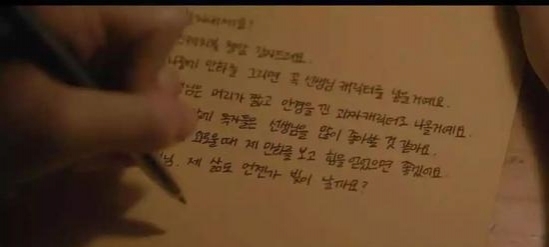 정말 감사드려요.
만화를 그리면 꼭 선생님 캐릭터를 넣을거예요.
머리가 짧고 안경을 낀 과자캐릭터로 나올거예요.
독자들은 선생님을 많이 좋아할 것 같아요.
외로울때 제 만화를 보고 힘을 얻었으면 좋겠어요.
제 삶도 언젠가 빛이 날까요?